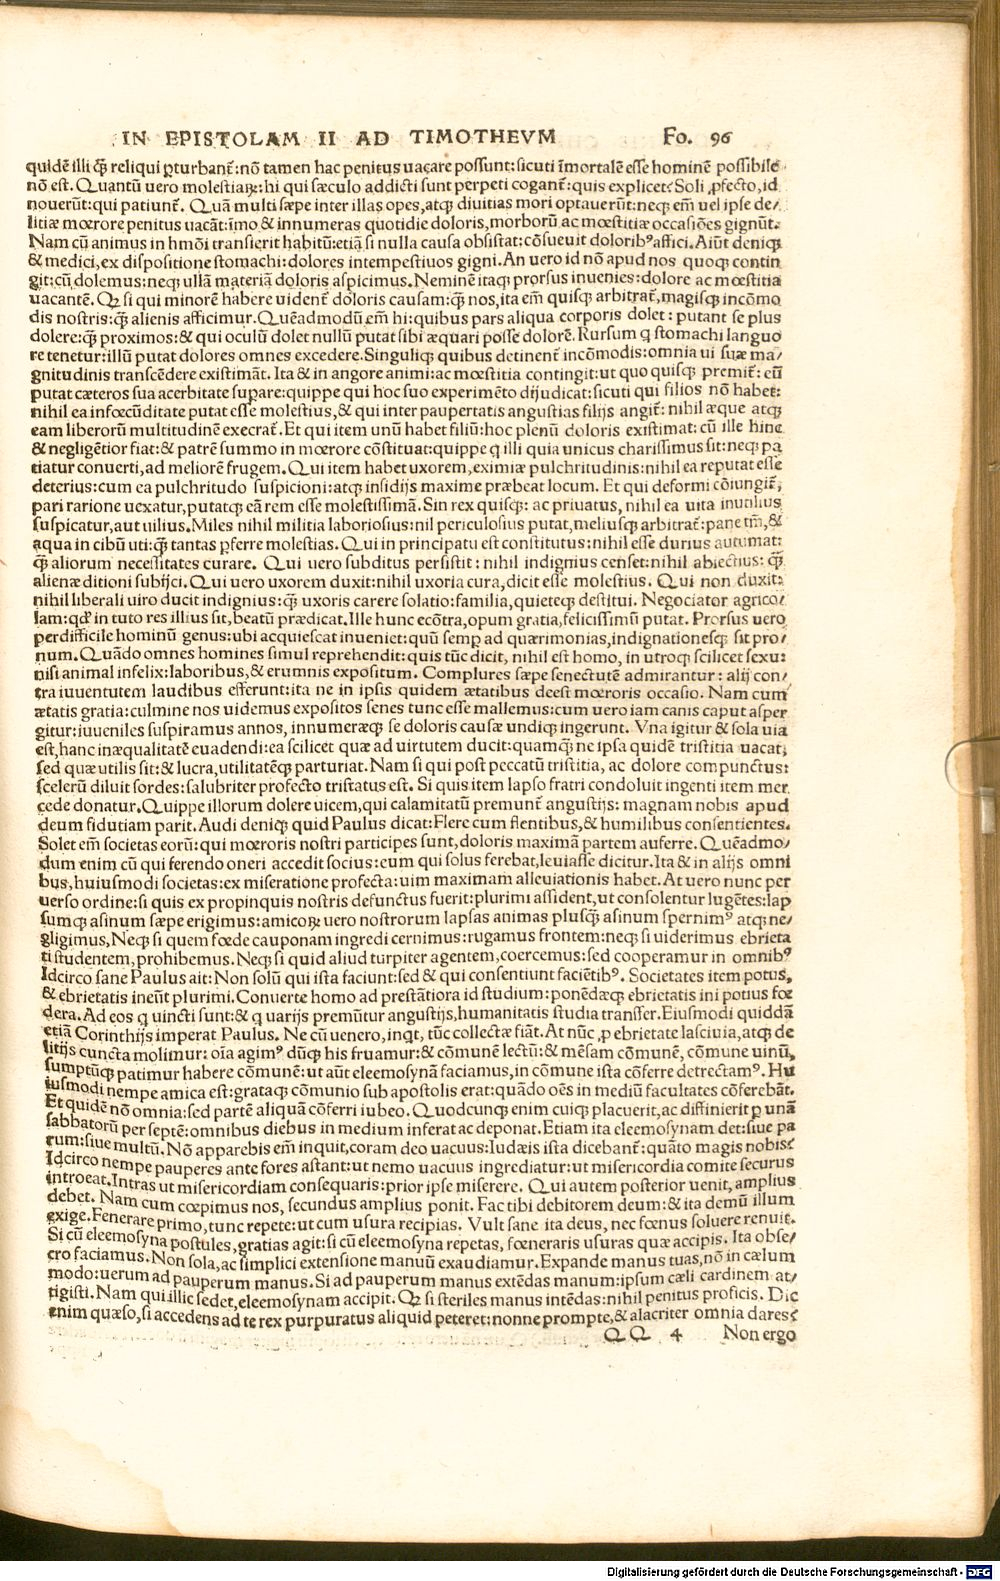 IN EPISTOLAM II AD TIMOTHEVM Fo. 96
quidē illi q̄ꝫ reliqui ꝑturbant̄: nō tamen hac penitus uacare possunt: sicuti īmortalē esse hominē possibile
nō est. Quantū uero molestiaꝝ: hi qui sæculo addicti sunt perpeti cogant̄: quis explicet? Soli ꝓfecto, id
nouerūt: qui patiunt̄. Quā multi sæpe inter illas opes, atqꝫ diuitias mori optauerūt: neqꝫ em̄ uel ipse de/
litiæ mœrore penitus uacāt: īmo & innumeras quotidie doloris, morborū ac mœstitiæ occasiōes gignūt.
Nam cū animus in hmōi transierit habitū: etiā si nulla causa obsistat: cōsueuit doloribꝰ affici. Aiūt deniqꝫ
& medici, ex dispositione stomachi: dolores intempestiuos gigni. An uero id nō apud nos quoqꝫ contin
git: cū dolemus: neqꝫ ullā materiā doloris aspicimus. Neminē itaqꝫ prorsus inuenies: dolore ac mœstitia
uacantē. Qꝫ si qui minorē habere uident̄ doloris causam: q̄ꝫ nos, ita em̄ quisqꝫ arbitrat̄, magisqꝫ incōmo
dis nostris: q̄ꝫ alienis afficimur. Quēadmodū em̄ hi: quibus pars aliqua corporis dolet: putant se plus
dolere: q̄ꝫ proximos: & qui oculū dolet nullū putat sibi æquari posse dolorē. Rursum q stomachi languo
re tenetur: illū putat dolores omnes excedere. Singuliqꝫ quibus detinent̄ incōmodis: omnia ui suæ ma/
gnitudinis transcēdere existimāt. Ita & in angore animi: ac mœstitia contingit: ut quo quisqꝫ premit̄: eū
putat cæteros sua acerbitate supare: quippe qui hoc suo experimēto dijudicat: sicuti qui filios nō habet:
nihil ea infœcūditate putat esse molestius, & qui inter paupertatis angustias filijs angit̄: nihil æque atqꝫ
eam liberorū multitudinē execrat̄. Et qui item unū habet filiū: hoc plenū doloris existimat: cū ille hinc
& negligētior fiat: & patrē summo in mœrore cōstituat: quippe q illi quia unicus charissimus sit: neqꝫ pa
tiatur conuerti, ad meliorē frugem. Qui item habet uxorem, eximiæ pulchritudinis: nihil ea reputat esse
deterius: cum ea pulchritudo suspicioni: atqꝫ insidijs maxime præbeat locum. Et qui deformi cōiungit̄,
pari ratione uexatur, putatqꝫ eā rem esse molestissimā. Sin rex quisqꝫ: ac priuatus, nihil ea uita inutilius
suspicatur, aut uilius. Miles nihil militia laboriosius: nil periculosius putat, meliusqꝫ arbitrat̄: pane tm̄, &
aqua in cibū uti: q̄ꝫ tantas ꝑferre molestias. Qui in principatu est constitutus: nihil esse durius autumat:
q̄ꝫ aliorum necessitates curare. Qui uero subditus persistit: nihil indignius censet: nihil abiectius: q̄ꝫ
alienæ ditioni subijci. Qui uero uxorem duxit: nihil uxoria cura, dicit esse molestius. Qui non duxit:
nihil liberali uiro ducit indignius: q̄ꝫ uxoris carere solatio: familia, quieteqꝫ destitui. Negociator agrico/
lam: qd̄ in tuto res illius sit, beatū prædicat. Ille hunc ecōtra, opum gratia, felicissimū putat. Prorsus uero
perdifficile hominū genus: ubi acquiescat inueniet: quū semp ad quærimonias, indignationesqꝫ sit pro/
num. Quādo omnes homines simul reprehendit: quis tūc dicit, nihil est homo, in utroqꝫ scilicet sexu:
nisi animal infelix: laboribus, & erumnis expositum. Complures sæpe senectutē admirantur: alij con/
tra iuuentutem laudibus efferunt: ita ne in ipsis quidem ætatibus deest mœroris occasio. Nam cum
ætatis gratia: culmine nos uidemus expositos senes tunc esse mallemus: cum uero iam canis caput asper
gitur: iuueniles suspiramus annos, innumeræqꝫ se doloris causæ undiqꝫ ingerunt. Vna igitur & sola uia
est, hanc inæqualitatē euadendi: ea scilicet quæ ad uirtutem ducit: quamq̄ꝫ ne ipsa quidē tristitia uacat,
sed quæ utilis sit: & lucra, utilitatēqꝫ parturiat. Nam si qui post peccatū tristitia, ac dolore compunctus:
scelerū diluit sordes: salubriter profecto tristatus est. Si quis item lapso fratri condoluit ingenti item mer
cede donatur. Quippe illorum dolere uicem, qui calamitatū premunt̄ angustijs: magnam nobis apud
deum fidutiam parit. Audi deniqꝫ quid Paulus dicat: Flere cum flentibus, & humilibus consentientes.
Solet em̄ societas eorū: qui mœroris nostri participes sunt, doloris maximā partem auferre. Quēadmo/
dum enim cū qui ferendo oneri accedit socius: eum qui solus ferebat, leuiasse dicitur. Ita & in alijs omni
bus, huiusmodi societas: ex miseratione profecta: uim maximam alleuiationis habet. At uero nunc per
uerso ordine: si quis ex propinquis nostris defunctus fuerit: plurimi assident, ut consolentur lugētes: lap
sumqꝫ asinum sæpe erigimus: amicoꝝ uero nostrorum lapsas animas plusq̄ꝫ asinum spernimꝰ atqꝫ ne/
gligimus, Neqꝫ si quem fœde cauponam ingredi cernimus: rugamus frontem: neqꝫ si uiderimus ebrieta
ti studentem, prohibemus. Neqꝫ si quid aliud turpiter agentem, coercemus: sed cooperamur in omnibꝰ
Idcirco sane Paulus ait: Non solū qui ista faciunt: sed & qui consentiunt faciētibꝰ. Societates item potus,
& ebrietatis ineūt plurimi. Conuerte homo ad prestātiora id studium: ponēdæqꝫ ebrietatis ini potius fœ
dera. Ad eos q uincti sunt: & q uarijs premūtur angustijs, humanitatis studia transfer. Eiusmodi quiddā
etiā Corinthijs imperat Paulus. Ne cū uenero, inqt, tūc collectæ fiāt. At nūc ꝓ ebrietate lasciuia, atqꝫ de
litijs cuncta molimur: oīa agimꝰ dūqꝫ his fruamur: & cōmunē lectū: & mēsam cōmunē, cōmune uinū,
sumptūqꝫ patimur habere cōmunē: ut aūt eleemosynā faciamus, in cōmune ista cōferre detrectamꝰ. Hu
iusmodi nempe amica est: grataqꝫ cōmunio sub apostolis erat: quādo oēs in mediū facultates cōferebāt.
Et quidē nō omnia: sed partē aliquā cōferri iubeo. Quodcunqꝫ enim cuiqꝫ placuerit, ac diffinierit ꝑ unā
sabbatorū per septē: omnibus diebus in medium inferat ac deponat. Etiam ita eleemosynam det: siue pa
rum: siue multū. Nō apparebis em̄ inquit, coram deo uacuus: Iudæis ista dicebant̄: quāto magis nobis?
Idcirco nempe pauperes ante fores astant: ut nemo uacuus ingrediatur: ut misericordia comite securus
introeat. Intras ut misericordiam consequaris: prior ipse miserere. Qui autem posterior uenit, amplius
debet. Nam cum cœpimus nos, secundus amplius ponit. Fac tibi debitorem deum: & ita demū illum
exige. Fenerare primo, tunc repete: ut cum usura recipias. Vult sane ita deus, nec fœnus soluere renuit.
Si cū eleemosyna postules, gratias agit: si cū eleemosyna repetas, fœneraris usuras quæ accipis. Ita obse/
cro faciamus. Non sola, ac simplici extensione manuū exaudiamur. Expande manus tuas, nō in cælum
modo: uerum ad pauperum manus. Si ad pauperum manus extēdas manum: ipsum cæli cardinem at/
tigisti. Nam qui illic sedet, eleemosynam accipit. Qꝫ si steriles manus intēdas: nihil penitus proficis. Dic
enim quæso, si accedens ad te rex purpuratus aliquid peteret: nonne prompte, & alacriter omnia dares?
QQ 4 Non ergo
Digitalisierung gefördert durch die Deutsche Forschungsgemeinschaft - DFG